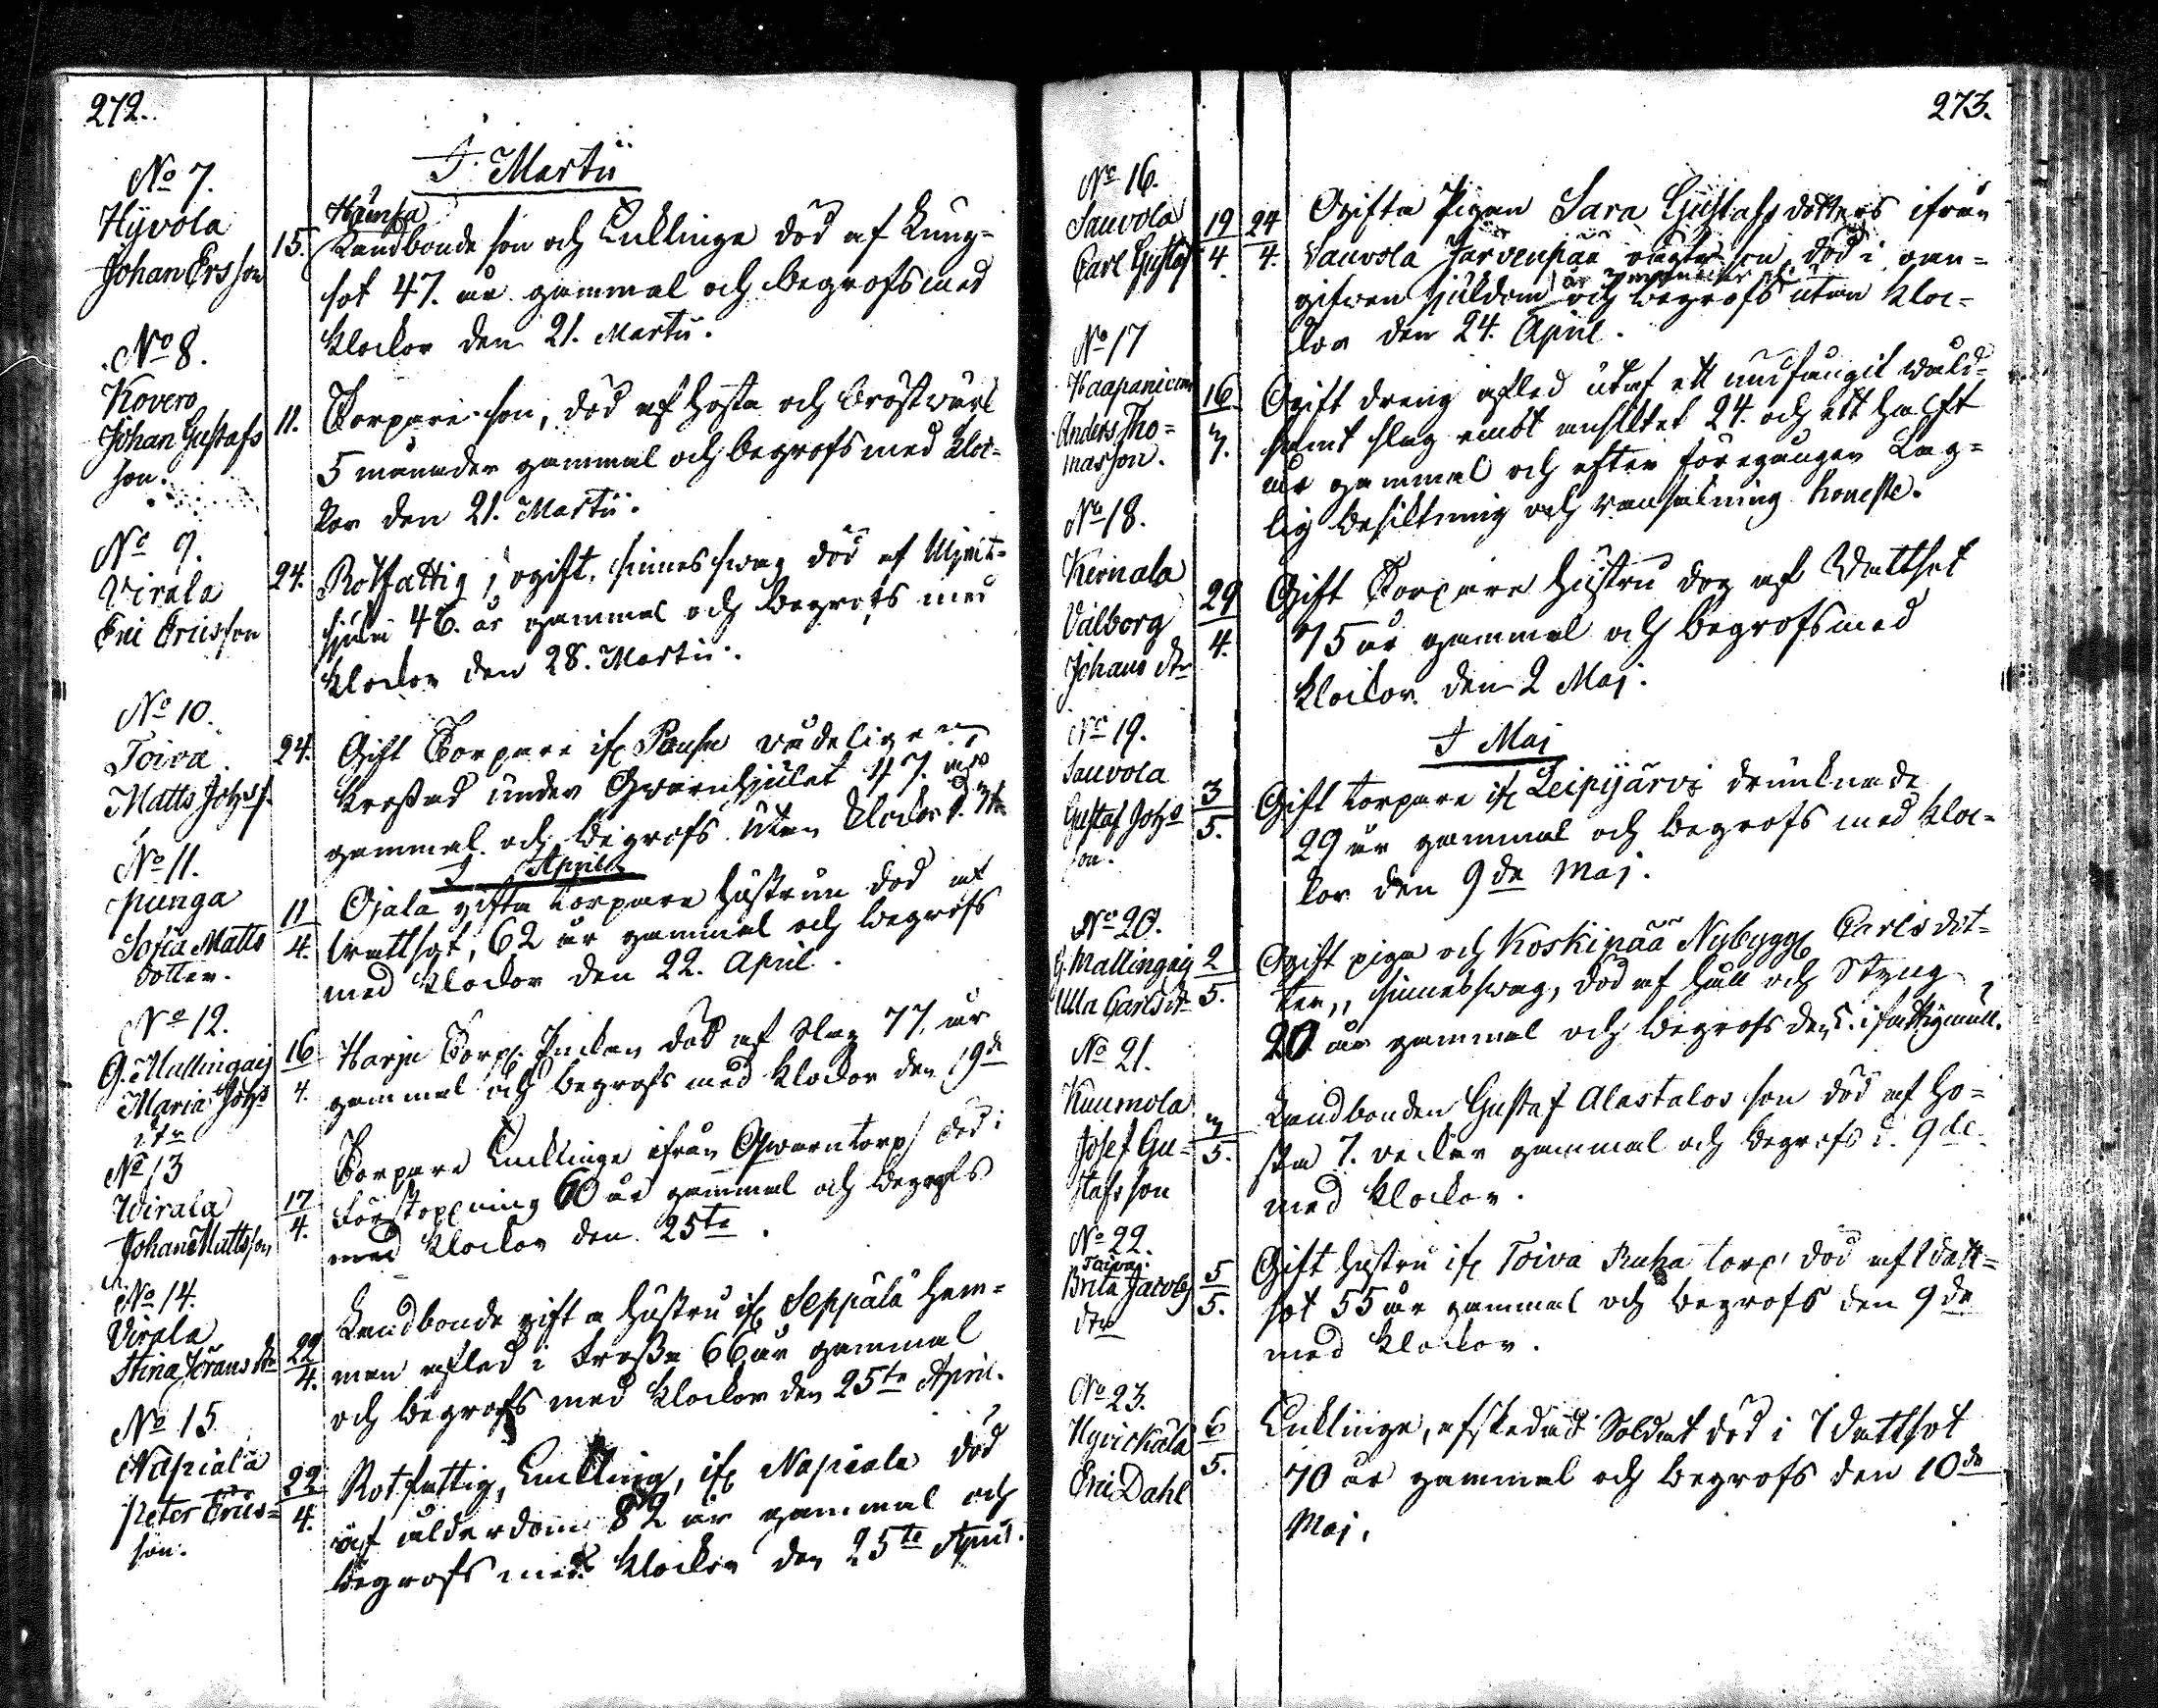 272.
I Martii
No 7.
Hÿvola
Johan Ersson
15.
Landbonde son och Enklinge död af Lung-
sot 47. år gammal och begrofs med
klockor den 21. Martii.
No 8.
Kovero
Johan Gustafs
son.
11.
Torpare son, död af hosta och bröstvärk
5 månader gammal och begrofs med kloc-
kor den 21. Martii.
No 9.
Virala
Eric Ericsson
24.
Rotfattig, ogift, sinnessvag död af
46. år gammal och begrofs med
klockor den 28. Martii.
No 10.
Toiva.
Matts Johss.
24.
Gift Torpare if: vådeligen
krossad under Qvarnhjulet 47. år
gammal och begrofs utan klockor
I April
No 11.
punga
Sofia Matts
dotter.
11/4.
Ojala gifta torpare hustrun död af
wattsot, 62 år gammal och begrofs
med klockor den 22. April.
No 12.
G. Mallingaij
Maria Johs
dtr
16/4
Harju Torp: Enckan död af slag 77. år
gammal och begrofs med klockor den 19de
No 13
Wirala
Johan Mattsson
17/4.
Torpare Encklinge ifrån Qwarntorp död i
förstoppning 60 år gammal och begrofs
med klockor den 25te.
No 14.
Virala
Stina Jöransdr
22/4.
Landbonde gifta hustru if: Seppälä hem-
man afled i frossa 66 år gammal
och begrofs med klockor den 25te April.
No 15
Napiala
Peter Erics-
son.
22/4.
Rotfattig, Enkling, if: Napiala död
af ålderdom 82 år gammal och
begrofs med klockor den 25te April.
273.
No 16.
Sauvola
Carl Gustaf
19/4.
24/4.
Ogifta Pigan Sara Gustafs dotters ifrån
Sauvola Järvenpää oägta son, död i oan-
gifven sjukdom och begrofs utan kloc-
kor den 24. April.
No 17
Haapaniemi
Anders Tho-
masson.
16/7.
Ogift dreng afled utaf ett undfångit våld-
samt slag emot ansiktet 24. och ett halft
år gammal och efter föregången Lag-
lig besiktning och ransakning honeste.
No 18.
Kernala
Valborg
Johans dtr
29/4.
Gift Torpare hustru dog af Wattsot
75 år gammal och begrofs med
klockor. den 2 Maj.
I Maj
No 19.
Sauvola
Gustaf Johs
son.
3/5.
Gift torpare if: Leipijärvi drunknade
29 år gammal och begrofs med kloc-
kor den 9de Maj.
No 20.
G. Mallingaij
Ulla Carlsdtr
2/5.
Ogift piga och Koskipää Nybygg: Carls dot-
ter, sinnessvag, död af håll och styng
20 år gammal och begrofs den 5. i fattigmull.
No 21.
Kuurnola
Josef Gu-
stafsson
3/5.
Landbonden Gustaf Alastalos son död af ho-
sta 7. veckor gammal och begrofs d. 9de
med klockor.
No 22.
Toiva.
Brita Jacobs
dtr
5/5.
Gift hustru if: Toiva Ruha torp död af Watt-
sot 55 år gammal och begrofs den 9de
med klockor.
No 23.
Hyvickälä
Eric Dahl
6/5.
Enklinge, afskedad Soldat död i Wattsot
70 år gammal och begrofs den 10de
Maj.